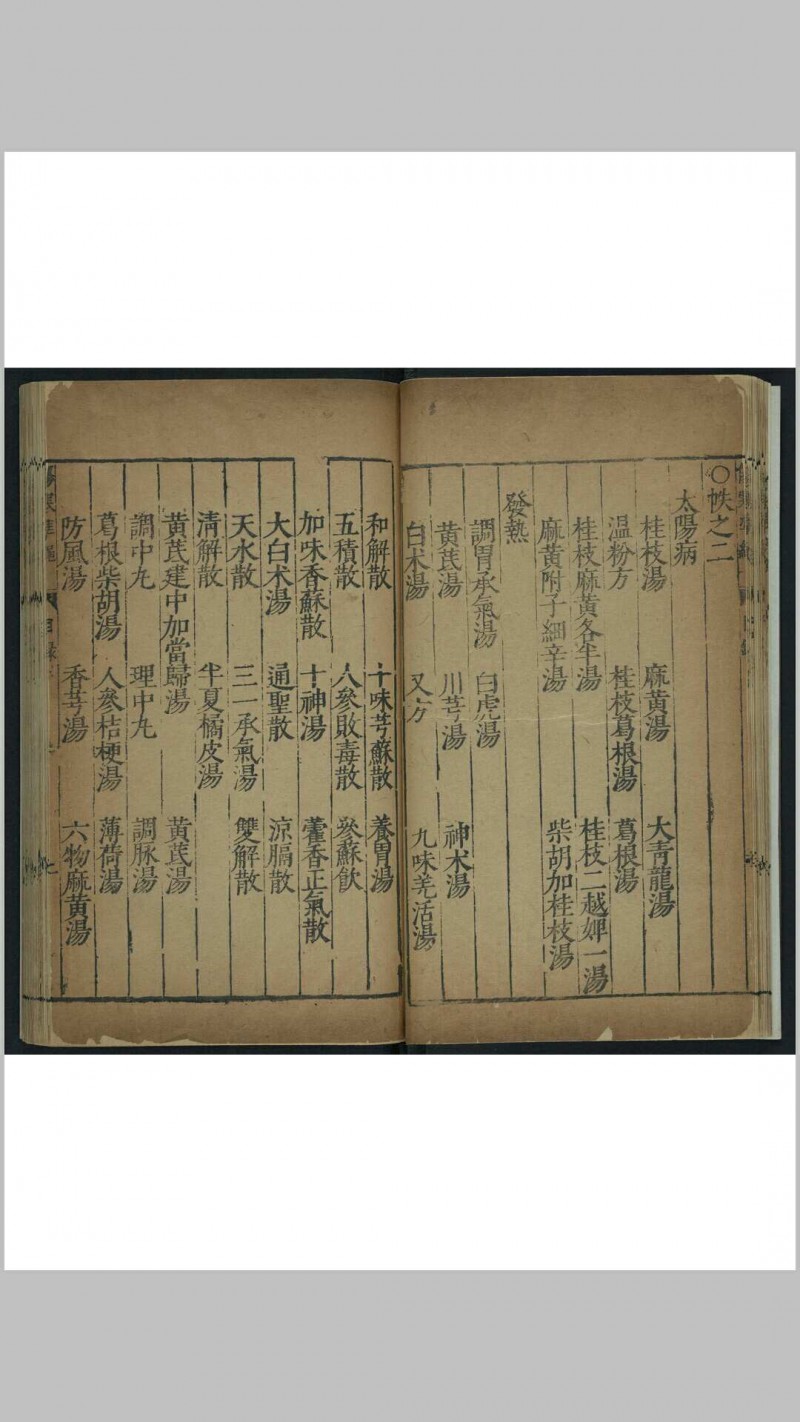 ○帙之二
太陽病
桂枝湯 麻黃湯 大青龍湯
温粉方 桂枝葛根湯 葛根湯
桂枝麻黃各半湯 桂枝二越婢一湯
麻黃附子細辛湯 柴胡加桂枝湯
發熱
調胃承氣湯 白虎湯
黃芪湯 川芎湯 神术湯
白术湯 又方 九味羌活湯
和解散 十味芎蘇散 養胃湯
五積散 人參敗毒散 參蘇飲
加味香蘇散 十神湯 藿香正氣散
大白术湯 通聖散 涼膈散
天水散 三一承氣湯 雙解散
清解散 半夏橘皮湯
黃芪建中加當歸湯 黃芪湯
調中丸 理中丸 調脉湯
葛根柴胡湯 人參桔梗湯 薄荷湯
防風湯 香芎湯 六物麻黃湯